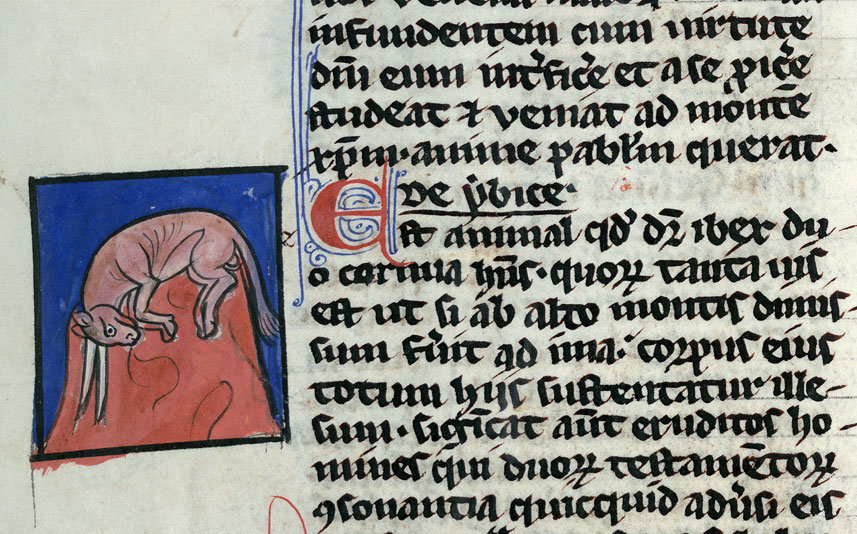 infundentem cum uirtute
dn̄i eum int̾fic̾e et a se ꝓic̾e
studeat ⁊ ueniat ad montē
xp̄m · anime pabl̄m querat ·
De ybice ·
Est animal qd̾ dr̄ ibex du
o cornua hn̄s · quoꝝ tanta uis
est ut si ab alto montis dimis-
sum fu̾it ad ima · corpus eius
totum hijs sustentatur ille-
sum · sigīficat aūt eruditos ho-
mines qui duoꝝ testamētoꝝ
ꝯsonantia quicquid adu̾si eis